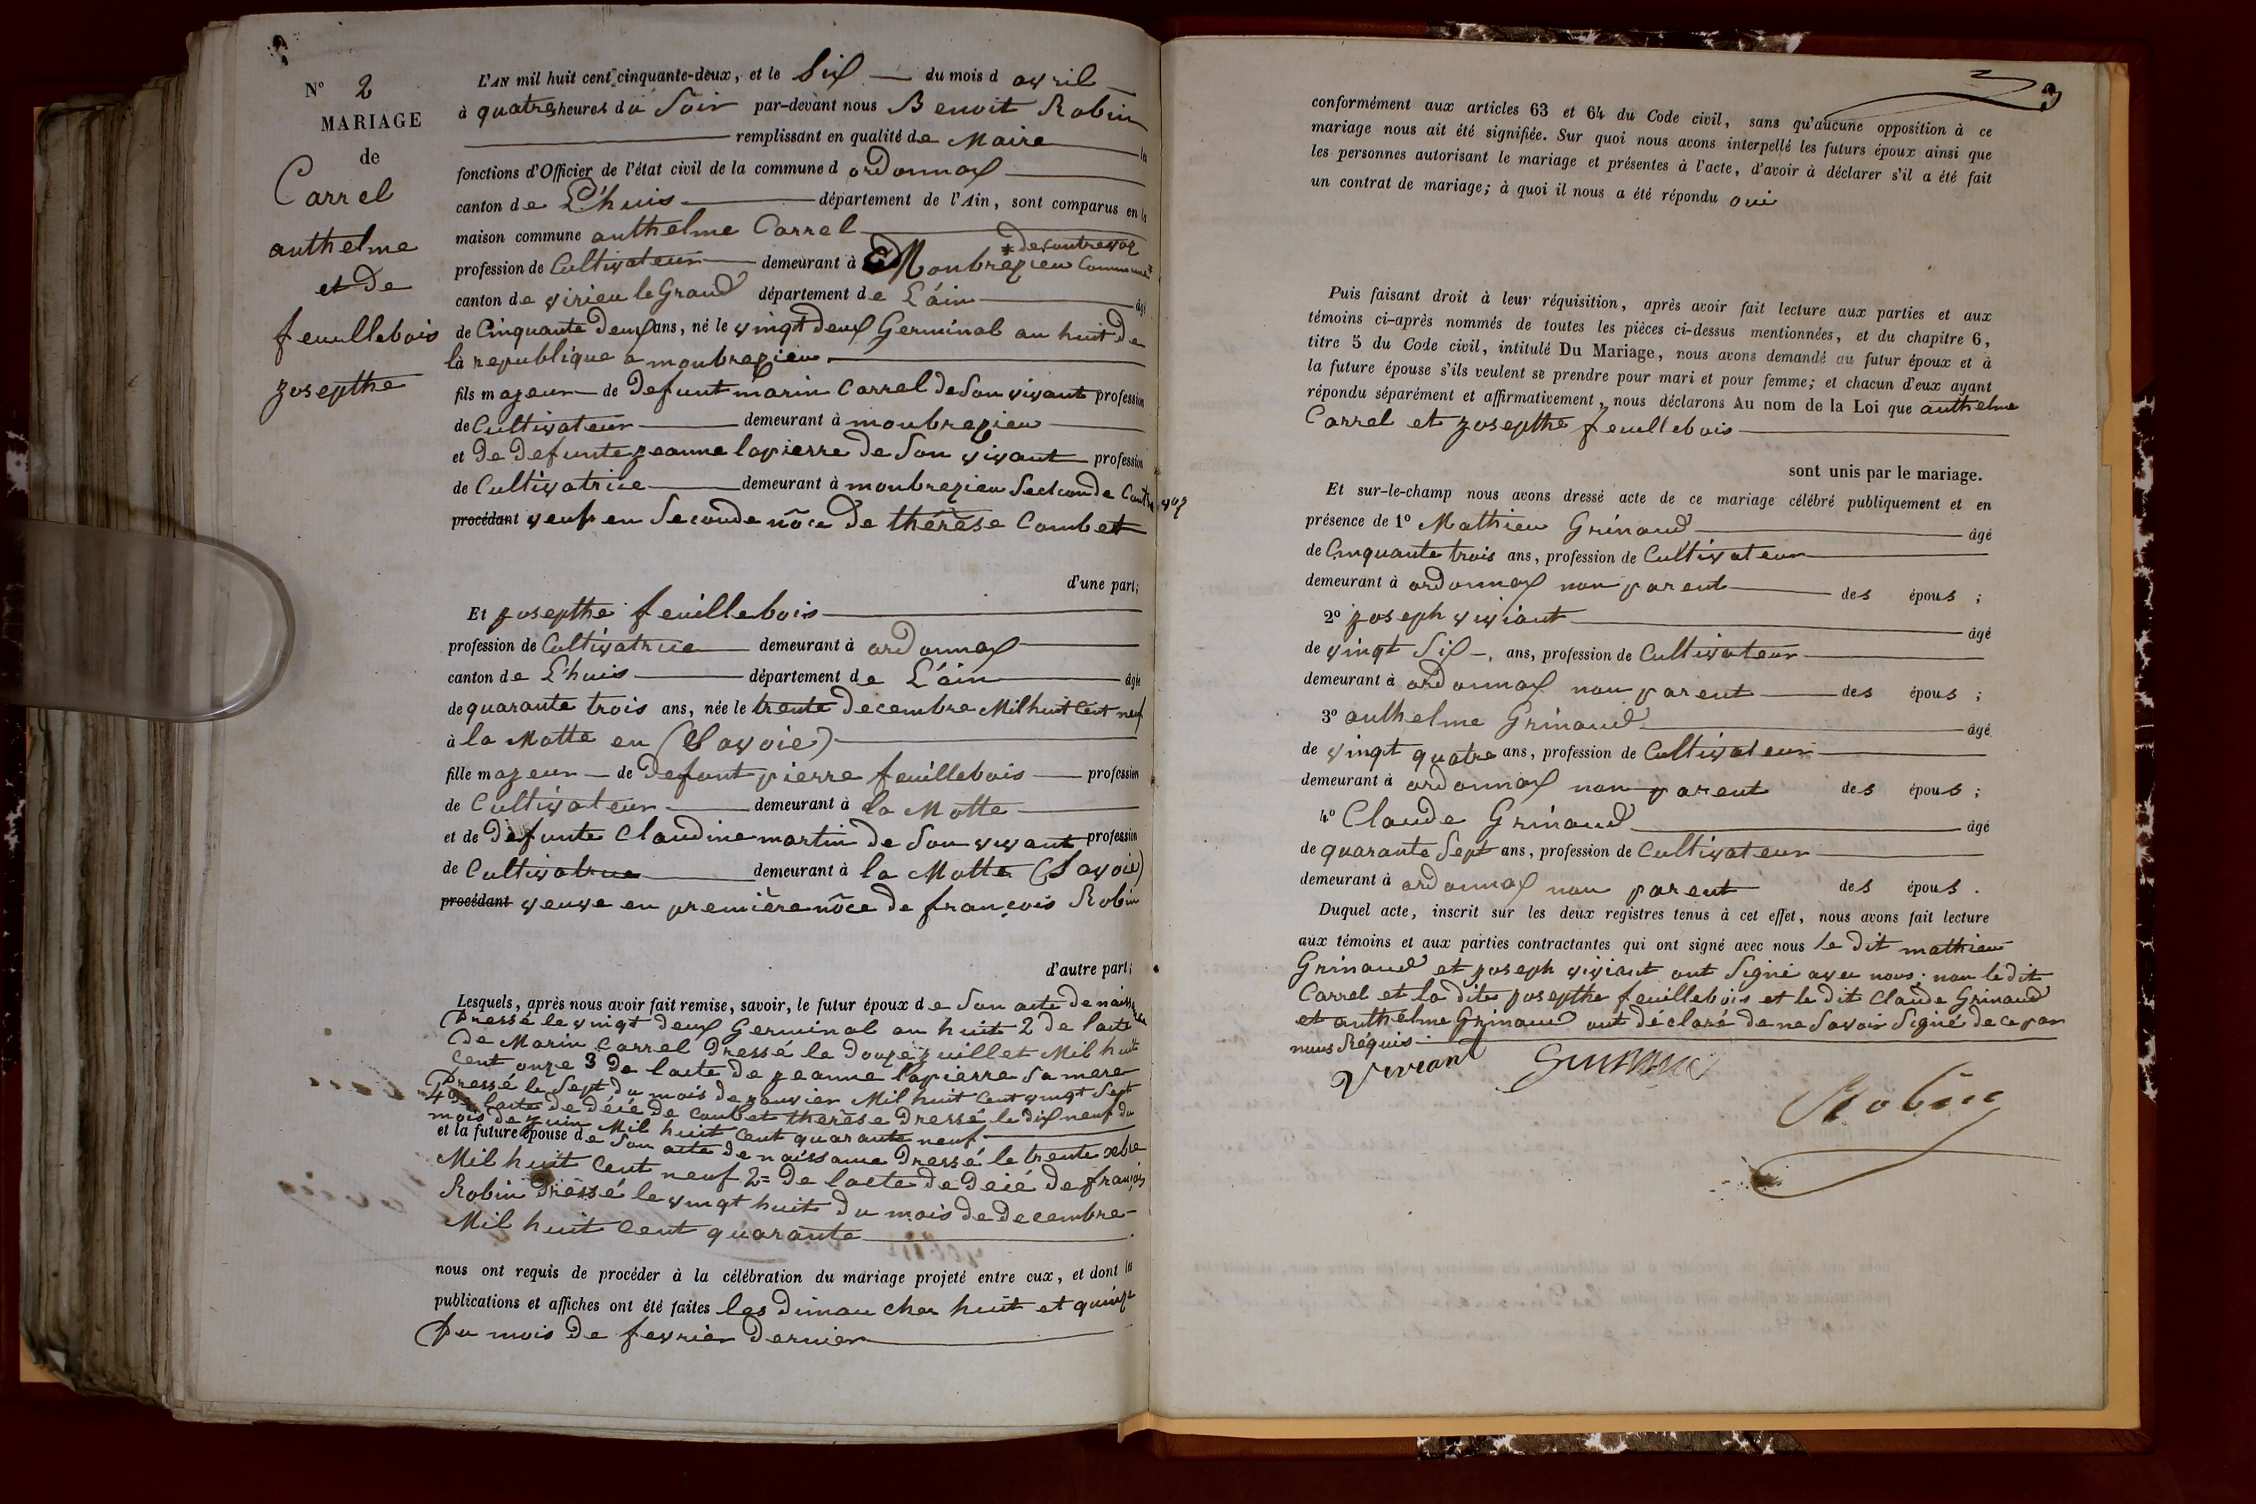 N° 2
MARIAGE
de
Carrel
anthelme
et de
feuillebois
josepthe
L'AN mil huit cent cinquante-deux, et le Six du mois d avril
à quatre heures du Soir par-devant nous Benoit Robin
remplissant en qualité de Maire les
fonctions d'Officier de l'état civil de la commune d ordonnax
canton de L'huis département de l'Ain, sont comparus en la
maison commune anthelme Carrel
profession de Cultivateur demeurant à Monbrezieu Commune*
* de contrevoz
canton de virieu le Grand département de L'ain âgé
de Cinquante deux ans, né le vingt deux Germinal an huit de
la republique a monbrezieu
fils majeur de defunt marin Carrel de Son vivant profession
de Cultivateur demeurant à monbrezieu
et de defunte jeanne lapierre de Son vivant profession
de Cultivatrice demeurant à monbrezieu Section de Contrevoz
procédant veuf en Seconde nôce de thérèse Combet
d'une part;
Et josepthe feuillebois
profession de Cultivatrice demeurant à ordonnax
canton de L'huis département de L'ain âgée
de quarante trois ans, née le trente decembre Mil huit Cent neuf
à la Motte en (Savoie)
fille majeur de defunt pierre feuillebois profession
de Cultivateur demeurant à la Motte
et de defunte Claudine martin de Son vivant profession
de Cultivatrice demeurant à la Motte (Savoie)
procédant veuve en première nôce de françois Robin
d'autre part;
Lesquels, après nous avoir fait remise, savoir, le futur époux de Son acte de naissance
Dressé le vingt deux Germinal an huit 2 de l'acte
de Marin Carrel Dressé le Douze juillet Mil huit
Cent onze 3 de l'acte de jeanne lapierre Sa mere
Dressé le Sept du mois de janvier Mil huit Cent vingt Sept
4 de l'acte de décé de Combet thérèse Dressé le dix neuf du
mois de juin Mil huit Cent quarante neuf
et la future épouse de Son acte de naissance Dressé le trente xbre
Mil huit Cent neuf 2= de l'acte de décé de françois
Robin Dressé le vingt huit du mois de Decembre
Mil huit Cent quarante
nous ont requis de procéder à la célébration du mariage projeté entre eux, et dont les
publications et affiches ont été faites les dimanches huit et quinze
Du mois de fevrier Dernier
3
conformément aux articles 63 et 64 du Code civil, sans qu'aucune opposition à ce
mariage nous ait été signifiée. Sur quoi nous avons interpellé les futurs époux ainsi que
les personnes autorisant le mariage et présentes à l'acte, d'avoir à déclarer s'il a été fait
un contrat de mariage; à quoi il nous a été répondu oui
Puis faisant droit à leur réquisition, après avoir fait lecture aux parties et aux
témoins ci-après nommés de toutes les pièces ci-dessus mentionnées, et du chapitre 6,
titre 5 du Code civil, intitulé Du Mariage, nous avons demandé au futur époux et à
la future épouse s'ils veulent se prendre pour mari et pour femme; et chacun d'eux ayant
répondu séparément et affirmativement, nous déclarons Au nom de la Loi que anthelme
Carrel et josepthe feuillebois
sont unis par le mariage.
Et sur-le-champ nous avons dressé acte de ce mariage célébré publiquement et en
présence de 1° Mathieu Grinaud âgé
de Cinquante trois ans, profession de Cultivateur
demeurant à ordonnax non parent des épous ;
2° joseph viviant âgé
de vingt Six ans, profession de Cultivateur
demeurant à ordonnax non parent des épous ;
3° anthelme Grinaud âgé
de vingt quatre ans, profession de Cultivateur
demeurant à ordonnax non parent des épous ;
4° Claude Grinaud âgé
de quarante Sept ans, profession de Cultivateur
demeurant à ordonnax non parent des épous .
Duquel acte, inscrit sur les deux registres tenus à cet effet, nous avons fait lecture
aux témoins et aux parties contractantes qui ont signé avec nous le dit mathieu
Grinaud et joseph viviant ont Signé avec nous; non le dit
Carrel et la dite josepthe feuillebois et le dit Claude Grinaud
et anthelme Grinaud ont déclaré de ne Savoir Signé de ce par
nous Requis
Vivian
Robin